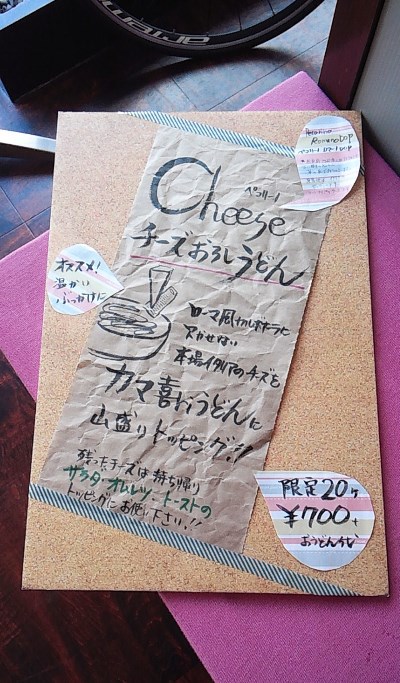 Pecorino
Romano DOP
ペコリーノ ロマーノ DOP
ペコリーノ
Cheese
チーズおろしうどん
オススメ!
温かい
ぶっかけに
ローマ風カルボナーラに
欠かせない
本場イタリアのチーズを
カマ喜りうどんに
山盛りトッピング!!
残ったチーズは持ち帰り
サラダ・オムレツ・トーストの
トッピングにお使い下さい!!
限定20ヶ
¥700+
おうどん代